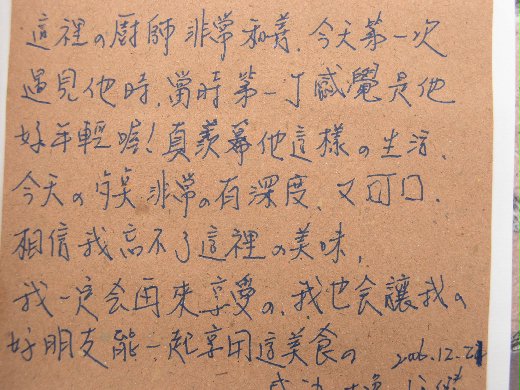 這裡の廚師非常和善，今天第一次
遇見他時，當時第一丁感覺是他
好年輕喔！真羨慕他這樣の生活，
今天の餐，非常の有深度，又可口，
相信我忘不了這裡の美味，
我一定会再來享受の，我也会讓我の
好朋友能一起享用這美食の 2006.12.21